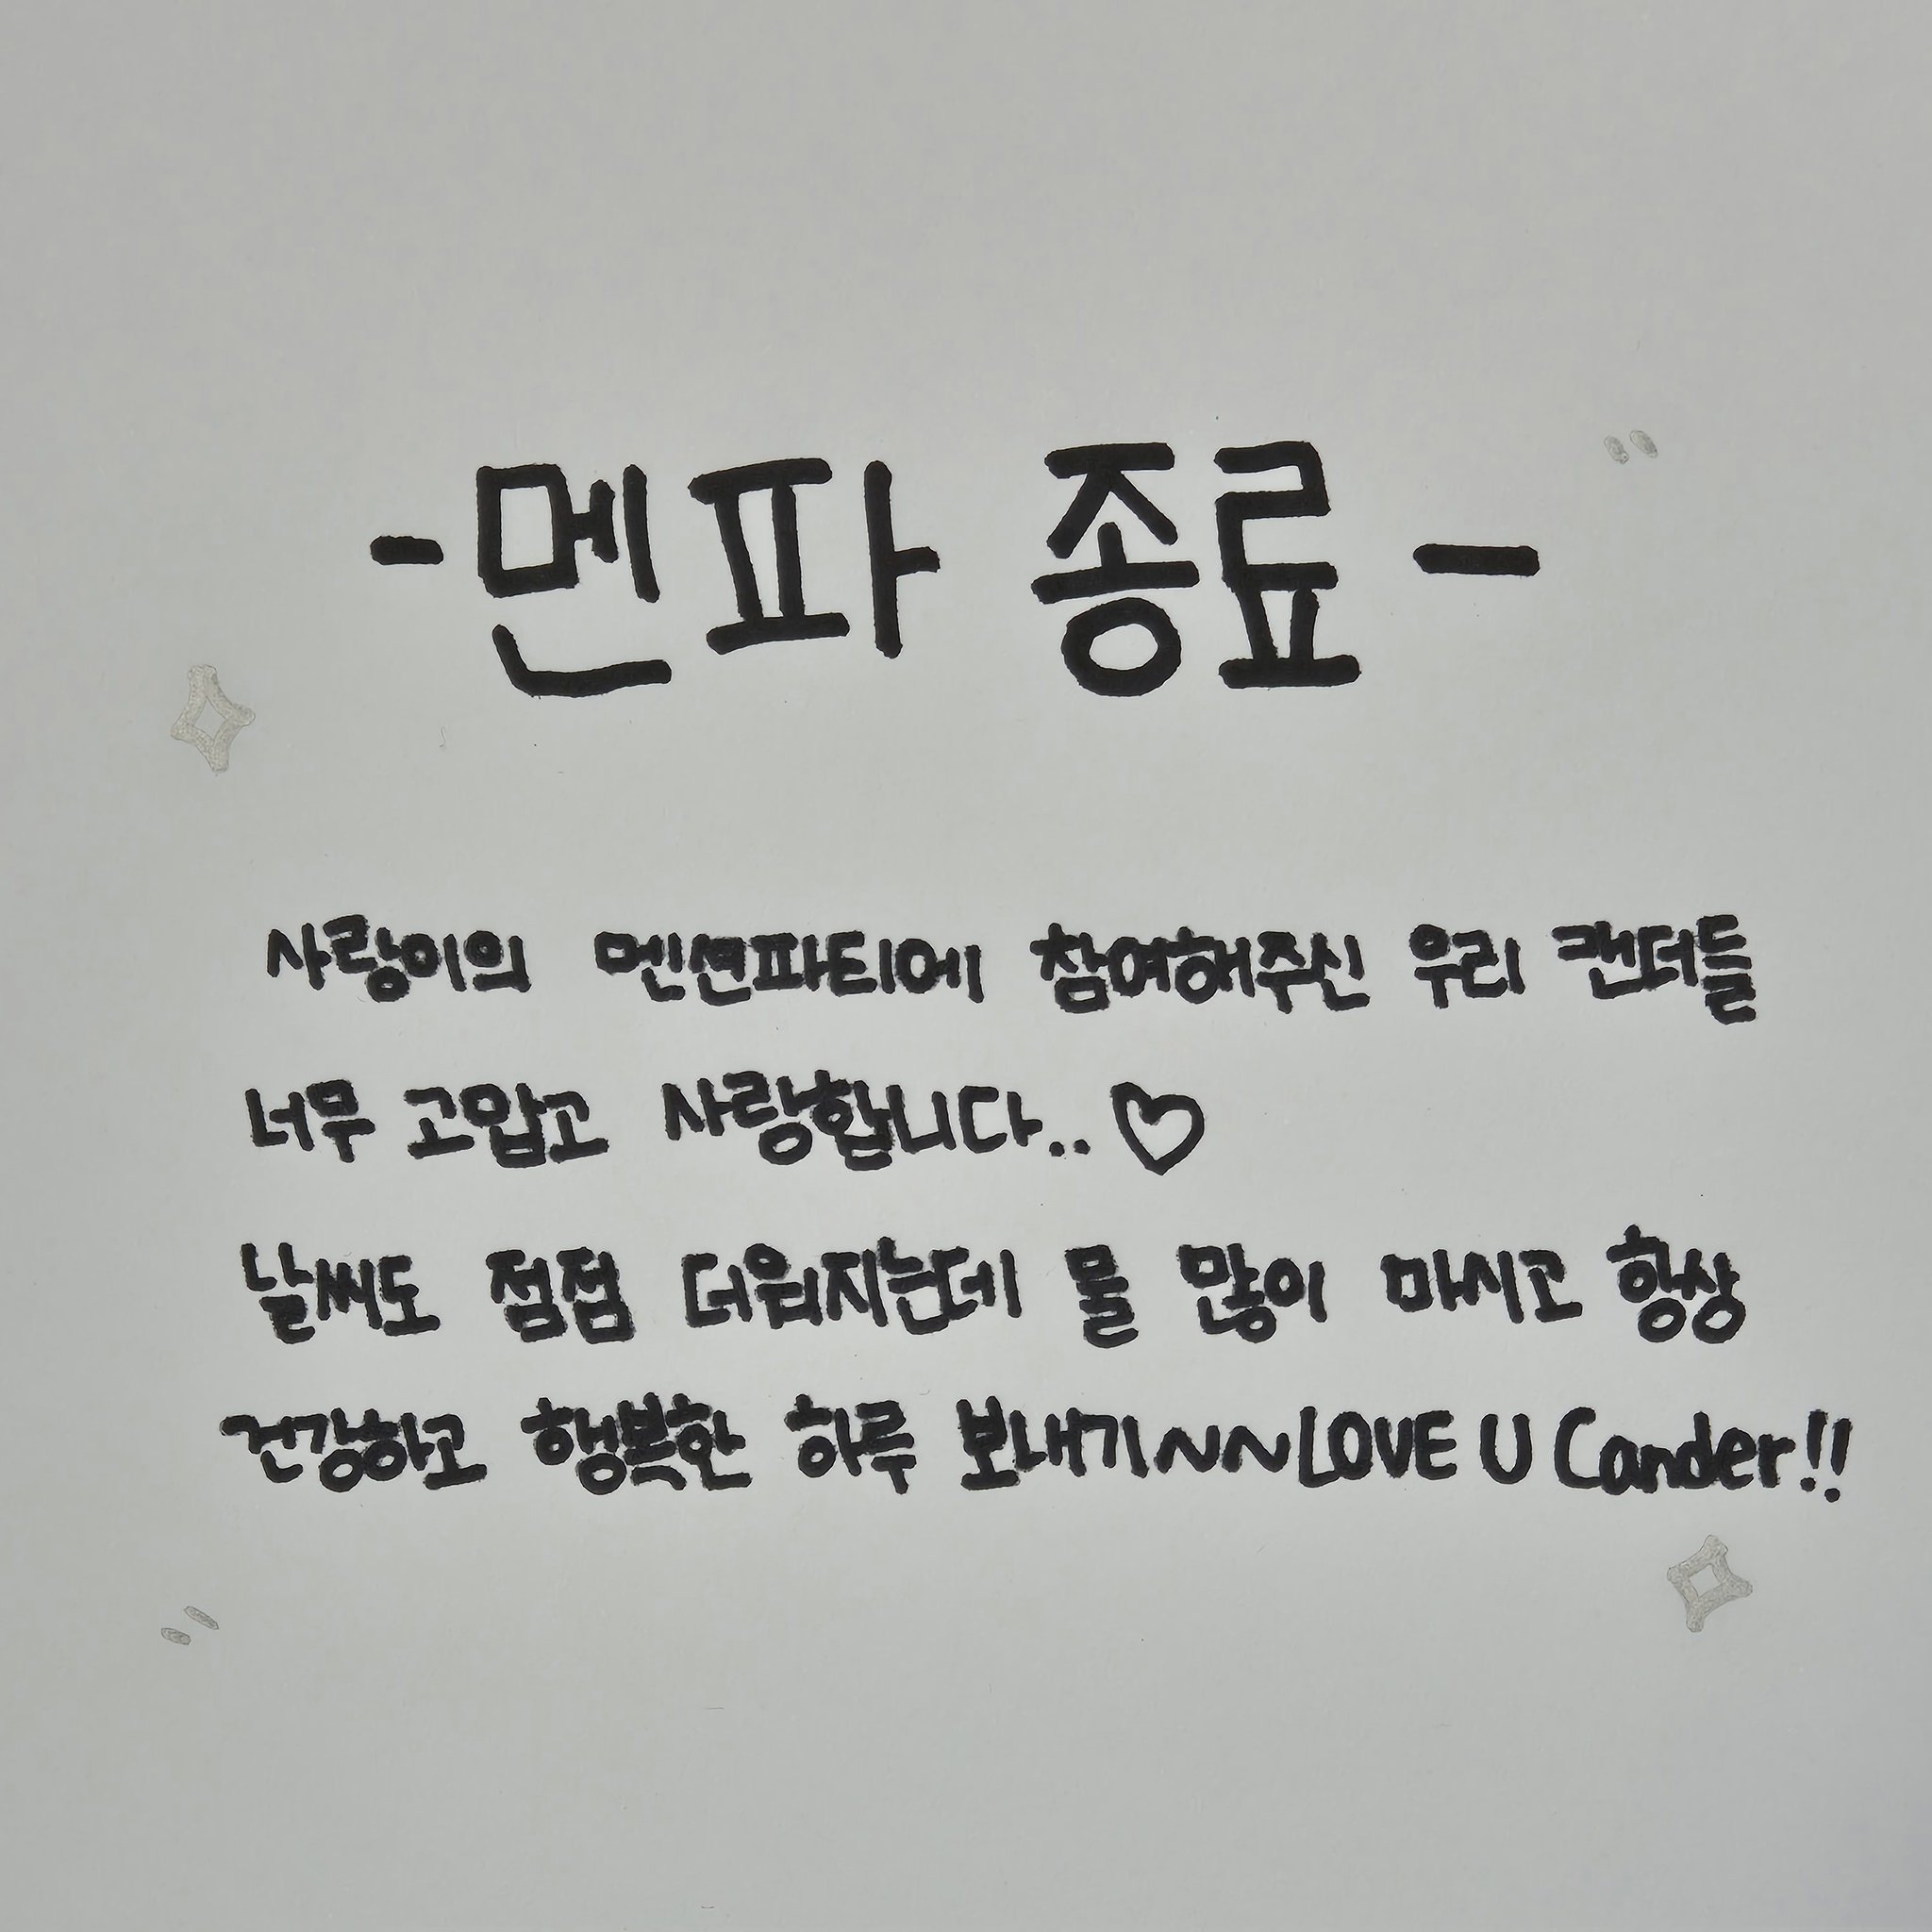 -멘파 종료-
사랑이의 멘션파티에 참여해주신 우리 캔더들
너무 고맙고 사랑합니다..♡
날씨도 점점 더워지는데 물 많이 마시고 항상
건강하고 행복한 하루 보내기~~LOVE U Cander!!